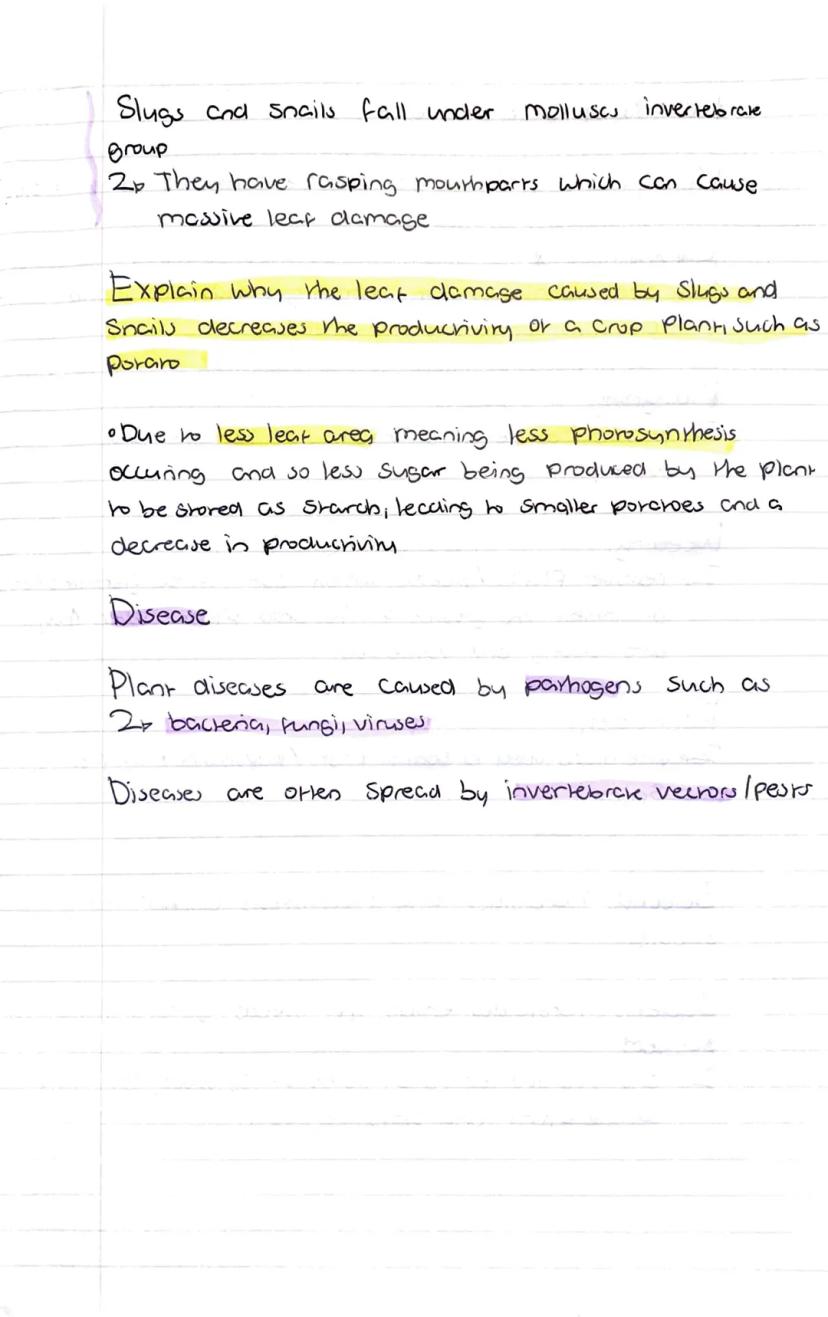 Slugs and snails fall under molluscs invertebrate
group
↳ They have rasping mouthparts which can cause
massive leaf damage
Explain why the leaf damage caused by slugs and
snails decreases the productivity of a crop plant, such as
potato
• Due to less leaf area meaning less photosynthesis
occuring and so less sugar being produced by the plant
to be stored as starch, leading to smaller potatoes and a
decrease in productivity
Disease
Plant diseases are caused by pathogens such as
↳ bacteria, fungi, viruses
Diseases are often spread by invertebrate vectors/pests